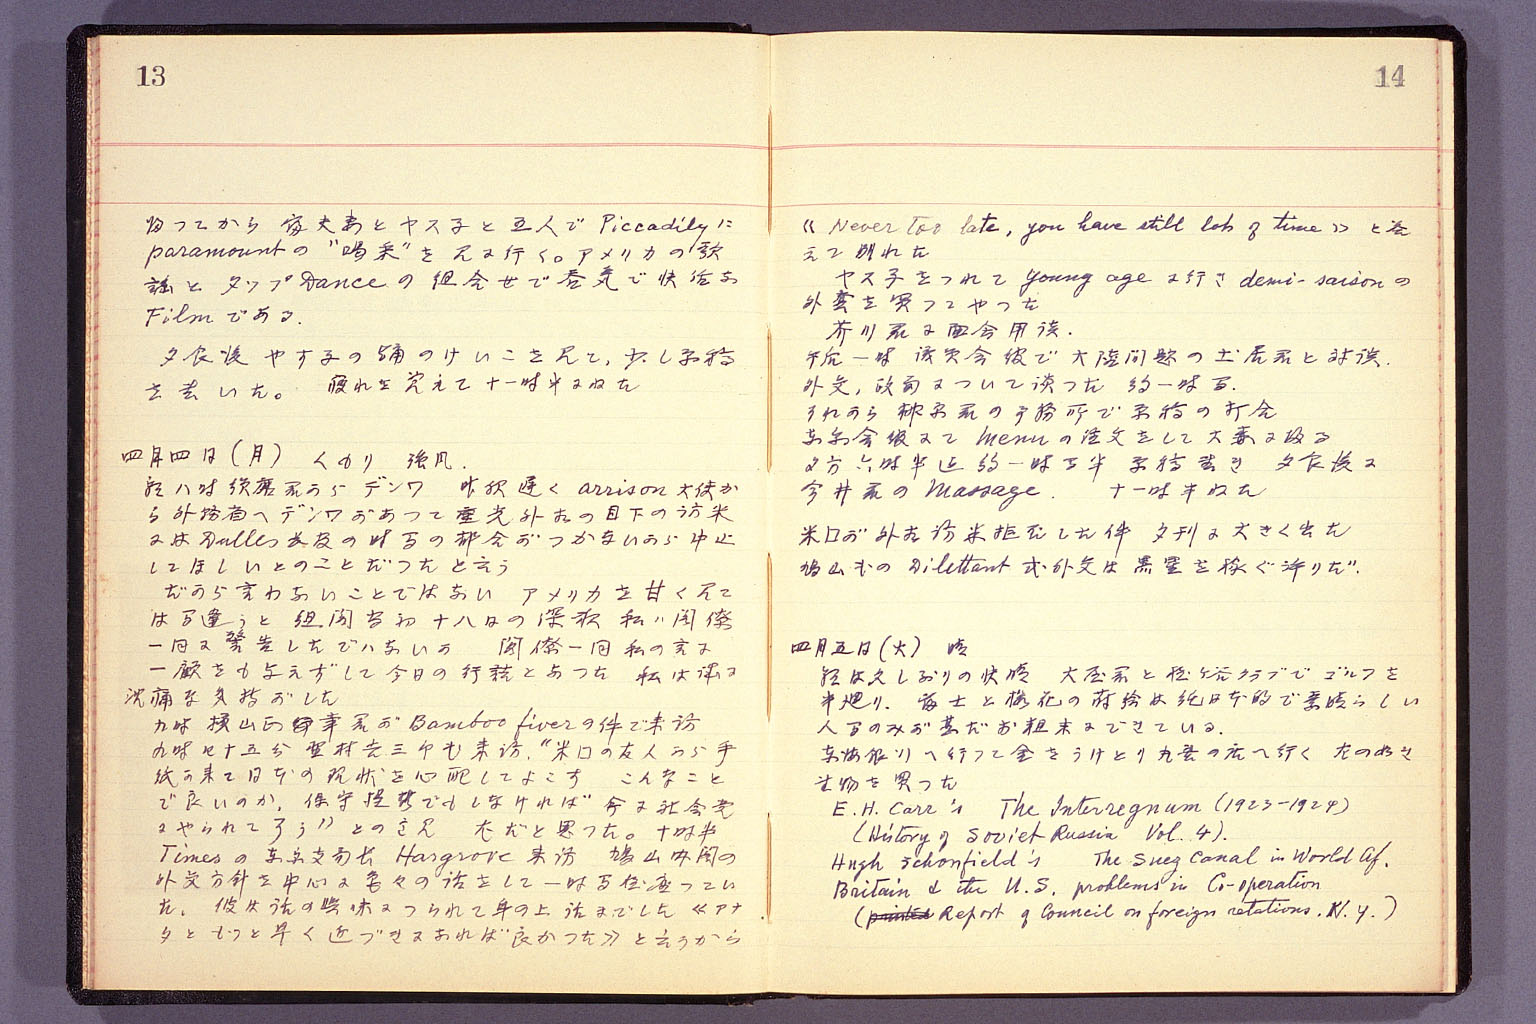 13
帰つてから 家夫妻とヤス子と五人で Piccadilyに
paramountの "喝采"を見に行く。アメリカの歌
謡と タップDanceの組合せで呑気で快活な
Filmである.
夕食後 やす子の踊のけいこを見て、少し原稿
を書いた。 疲れを覚えて十一時半にねた
四月四日(月) くもり 強風.
朝八時須磨君から デンワ 昨夜遅く arrison大使か
ら外務省へデンワがあつて重光外相の目下の訪米
にはDulles長官の時間の都合がつかないから中止
してほしいとのことだつたと云う
だから言わないことではない アメリカを甘く見て
は間違うと 組閣当初 十八日の深夜 私ハ閣僚
一同に警告したでハないか 閣僚一同 私の言に
一顧をも与えずして今日の行詰となつた 私は誠に
沈痛な気持がした
九時 横山 君が Bamboo fiverの件で来訪
九時四十五分 吉三郎も来訪. "米国の友人から手
紙が来て日本の現状を心配してよこす こんなこと
で良いのか. 保守提携でもしなければ 今に社会党
にやられて了う" との意見 尤だと思つた。十時半
Timesの東京支局長 Hargrove 来訪 鳩山内閣の
外交方針を中心に色々の話をして一時間位座つてい
た. 彼は話の興味につられて身の上話までした《アナ
タともつと早く近づきになれば良かつた》と云うから
14
《 Never too late, you have still lots of time 》と答
えて別れた
ヤス子をつれて young age に行き demi-saisonの
外套を買つてやつた
芥川君に面会用談.
午后一時 議員会館で大陸問題の土居君と対談.
外交, 政局について談つた 約一時間.
それから 君の事務所で原稿の打合
東京会館にて menuの注文をして大森に帰る
夕方六時半迄約一時間半 原稿書き 夕食後に
今井君の Massage. 十一時半ねた
米国が外相訪米拒否した件 夕刊に大きく出た
鳩山もの Dilettant 式外交は黒星を稼ぐ許りだ".
四月五日(火) 晴
朝は久しぶりの快晴 大屋君と程ヶ谷クラブでゴルフを
半廻り. 富士と桜花の蒔絵は純日本的で素晴らしい
人間のみが甚だお粗末にできている.
東海銀行へ行つて金をうけとり丸善の店へ行く 左の如き
書物を買つた
E. H. Carr's The Interregnum (1923-1924)
(History of Soviet Russia Vol. 4).
Hugh Schonfield's The Suez Canal in World Af.
Britain & the U.S. problems in Co-operation
(printed Report of Council on foreign relations. N. y. )